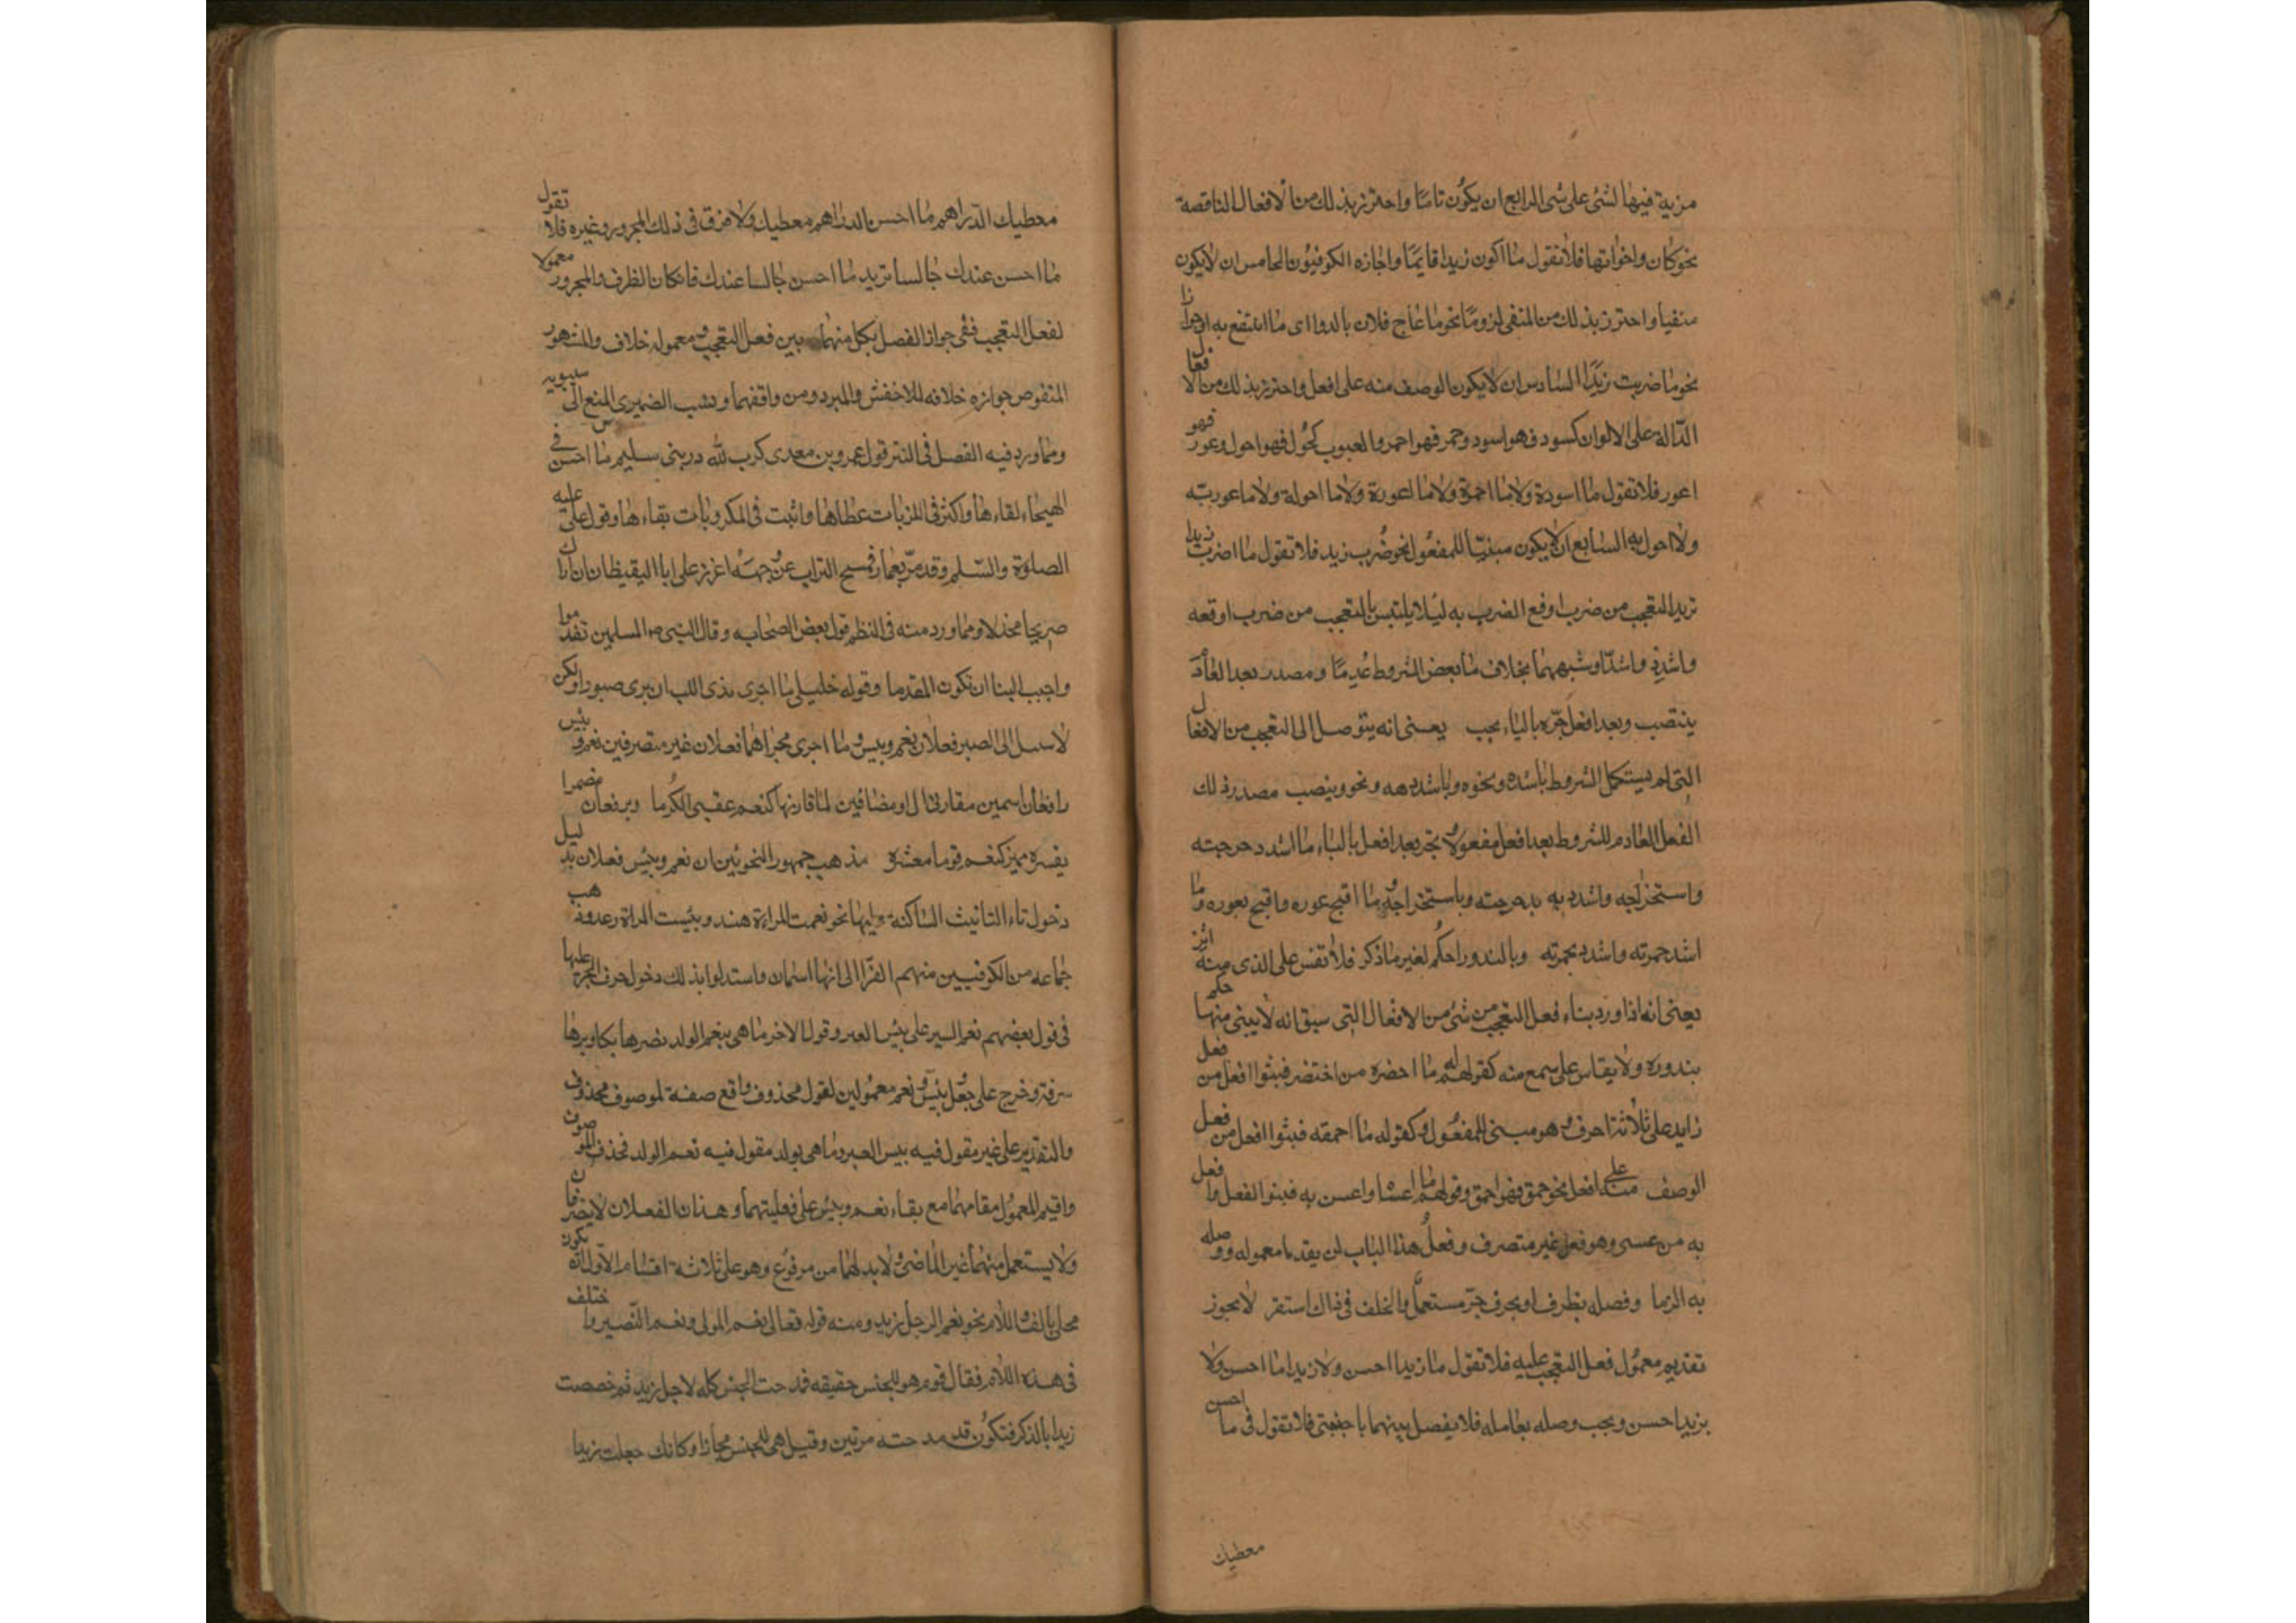 مزية فيها لشئ على شئ الرابع ان يكون تاما واحترز بذلك من الافعال الناقصة
نحو كان واخواتها فلا تقول ما اكون زيدا قايما واجازه الكوفيون الخامس ان لا يكون
منفيا واحترز بذلك من المنفى لزوما نحو ما عاج فلان بالدوا اى ما انتفع به او جوازا
نحو ما ضربت زيدا السادس ان لا يكون الوصف منه على افعل واحترز بذلك من الافعال
الدالة على الالوان كسود فهو اسود وحمر فهو احمر والعيوب كحول فهو احول وعور فهو
اعور فلا تقول ما اسوده ولا ما احمره ولا ما اعوره ولا ما احوله ولا ما عور به
ولا احول به السابع ان لا يكون مبنيا للمفعول نحو ضرب زيد فلا تقول ما اضرب زيدا
تريد التعجب من ضرب اوقع الضرب به ليلا يلتبس بالتعجب من ضرب اوقعه
واشدد واشد او شبههما يخلف ما بعض الشروط عدما ومصدر بعد العادم
ينتصب وبعد افعل جره بالباء يجب يعنى انه يتوصل الى التعجب من الافعال
التى لم يستكمل الشروط باشده ونحوه وباشدد به ونحو وينصب مصدر ذلك
الفعل العادم للشروط بعد افعل مفعولا ويجر بعد افعل بالباء ما اشد دحرجته
واستخراجه واشدد به بدحرجته وباستخراجه وما اقبح عوره واقبح بعوره وما
اشد حمرته واشدد بحمرته وبالندور احكم لغير ما ذكر فلا تقس على الذى منه اثر
يعنى انه اذا ورد بناء فعل التعجب من شئ من الافعال التى سبق انه لا يبنى منها حكم
بندوره ولا يقاس على سمع منه كقولهم ما اخضره من اختضر فبنوا افعل من فعل
زايد على ثلاثة احرف وهو مبنى للمفعول وكقوله ما احمقه فبنوا افعل من فعل
الوصف منه على افعل نحو حمق فهو احمق وقولهم ما اعساه واعسى به فبنوا الفعل وافعل
به من عسى وهو فعل غير متصرف وفعل هذا الباب لن يقدما معموله ووصله
به الزما وفصله بظرف او بحرف جر مستعمل والخلف فى ذاك استقر لا يجوز
تقديم معمول فعل التعجب عليه فلا تقول ما زيدا احسن ولا زيدا ما احسن ولا
بزيد احسن ويجب وصله بعامله فلا يفصل بينهما باجنبى فلا تقول فى ما احسن
معطيك
معطيك الدراهم ما احسن الدراهم معطيك ولا فرق فى ذلك المجرور وغيره فلا تقول
ما احسن عندك جالسا تريد ما احسن جالسا عندك فانكان الظرف والمجرور معمولا
لفعل التعجب ففى جواز الفصل بكل منهما بين فعل التعجب ومعموله خلاف والمشهور
المنصوص جوازه خلافه للاخفش والمبرد ومن وافقهما ونسب الضميرى المنع الى سيبويه
ومما ورد فيه الفصل فى النثر قول عمرو بن معدى كرب لله در بنى سليم ما احسن فى
الهيجاء لقاءها واكثر فى اللزبات عطاها واثبت فى المكروبات بقاءها وقول على عليه
الصلوة والسلم وقد مر بعمار فمسح التراب عن وجهه اعزز على ابا اليقيظان ان اراك
صريحا مجدلا ومما ورد منه فى النظم قول بعض الصحابه وقال النبى ص المسلمين تقدموا
واحبب الينا ان تكون المقدما وقوله خليلى ما احرى بذى اللب ان يرى صبورا ولكن
لا سبيل الى الصبر فعلان نعم وبيس وما اجرى مجراهما فعلان غير متصرفين نعم وبئس
رافعان اسمين مقارنى ال او مضافين لما قارنها كنعم عقبى الكرما ويرفعان مضمرا
يفسره مميز كنعم قوما معشره مذهب جمهور النحويين ان نعم وبئس فعلان بدليل
دخول تاء التانيث الساكنة عليها نحو نعمت المراءة هند وبئست المراة دعد وذهب
جماعه من الكوفيين منهم الفرا الى انها اسمان واستدلوا بذلك دخول حرف الجر عليها
فى قول بعضهم نعم السير على بئس العير وقول الاخر ما هى بنعم الولد نصرها بكا وبرها
سرقة وخرج على جعل بئس ونعم معمولين لقول محذوف واقع صفة لموصوف محذوف
والتقدير على غير مقول فيه بيس العير وما هى بولد مقول فيه نعم الولد فحذف الموصوف
واقيم المعمول مقامهما مع بقاء نعم وبئس على فعليتهما وهذان الفعلان لا يتصرفان
ولا يستعمل منهما غير الماضى ولا بد لهما من مرفوع وهو على ثلاثة اقسام الاول ان يكون
محلى بالف واللام نحو نعم الرجل زيد ومنه قوله تعالى نعم المولى ونعم النصير واختلف
فى هذه اللام فقال قوم هو للجنس حقيقه فمدحت الجنس كله لاجل زيد ثم خصصت
زيدا بالذكر فتكون قد مدحته مرتين وقيل هى للجنس مجازا وكانك جعلت زيدا